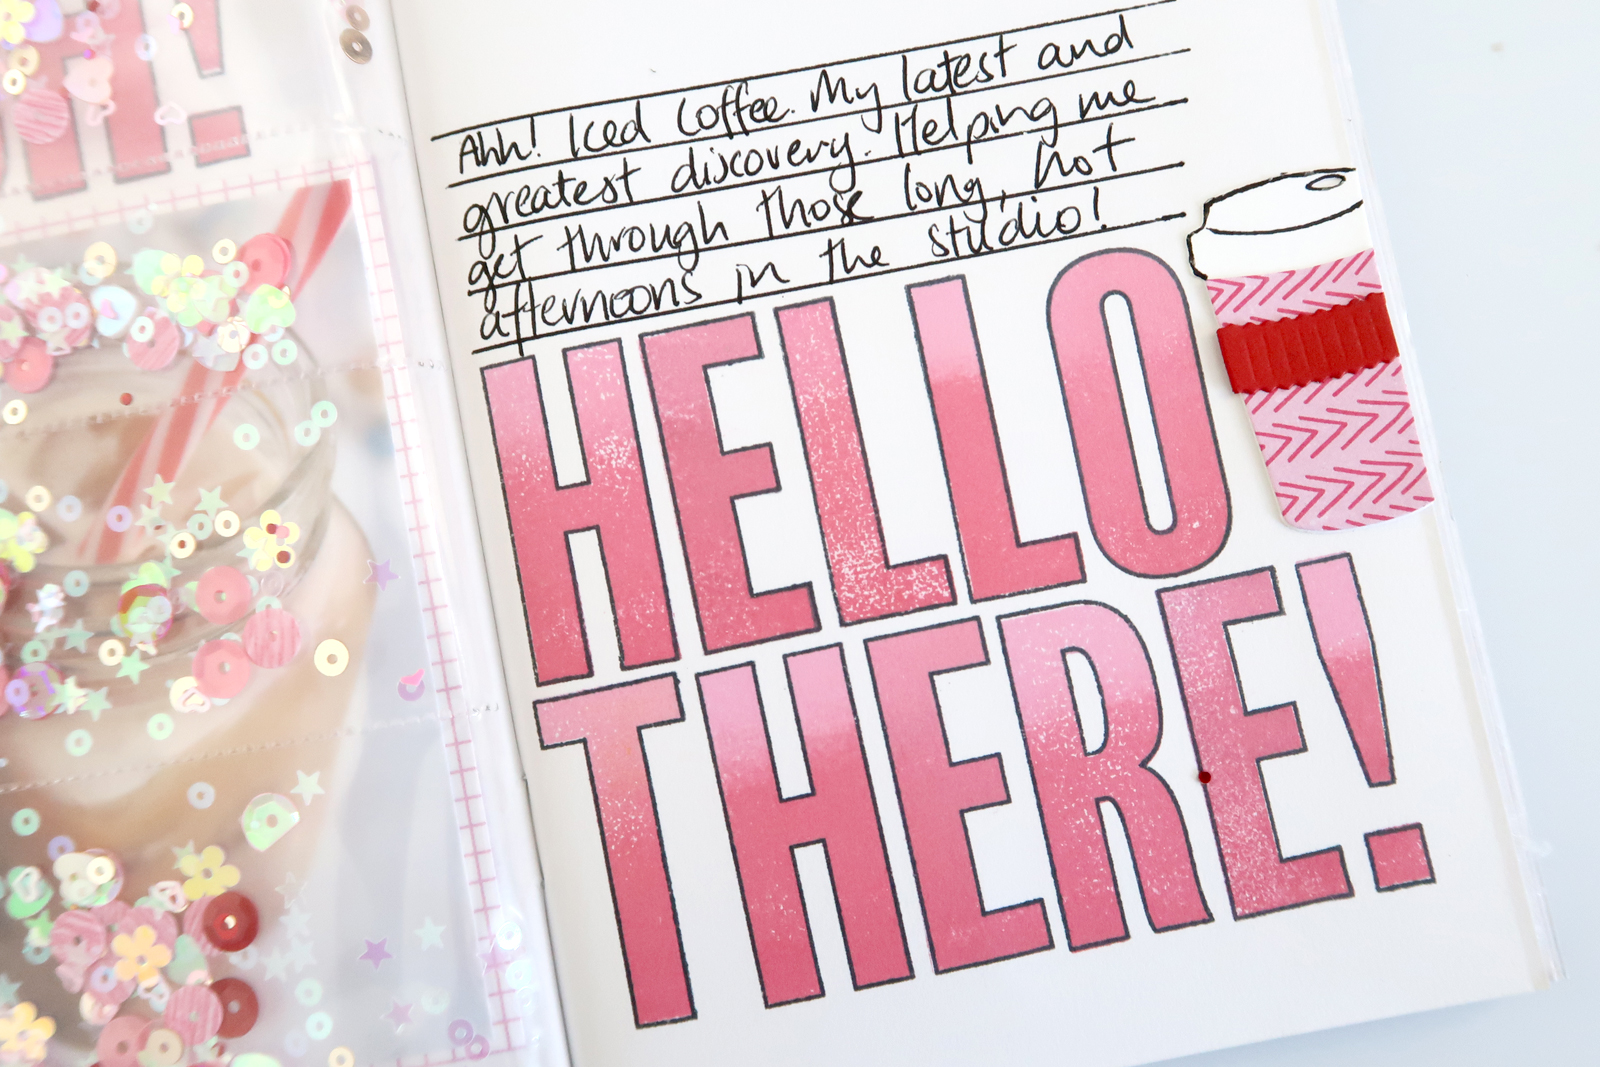 Ahh! Iced Coffee. My latest and
greatest discovery. Helping me
get through those long, hot
afternoons in the studio!
HELLO
THERE!